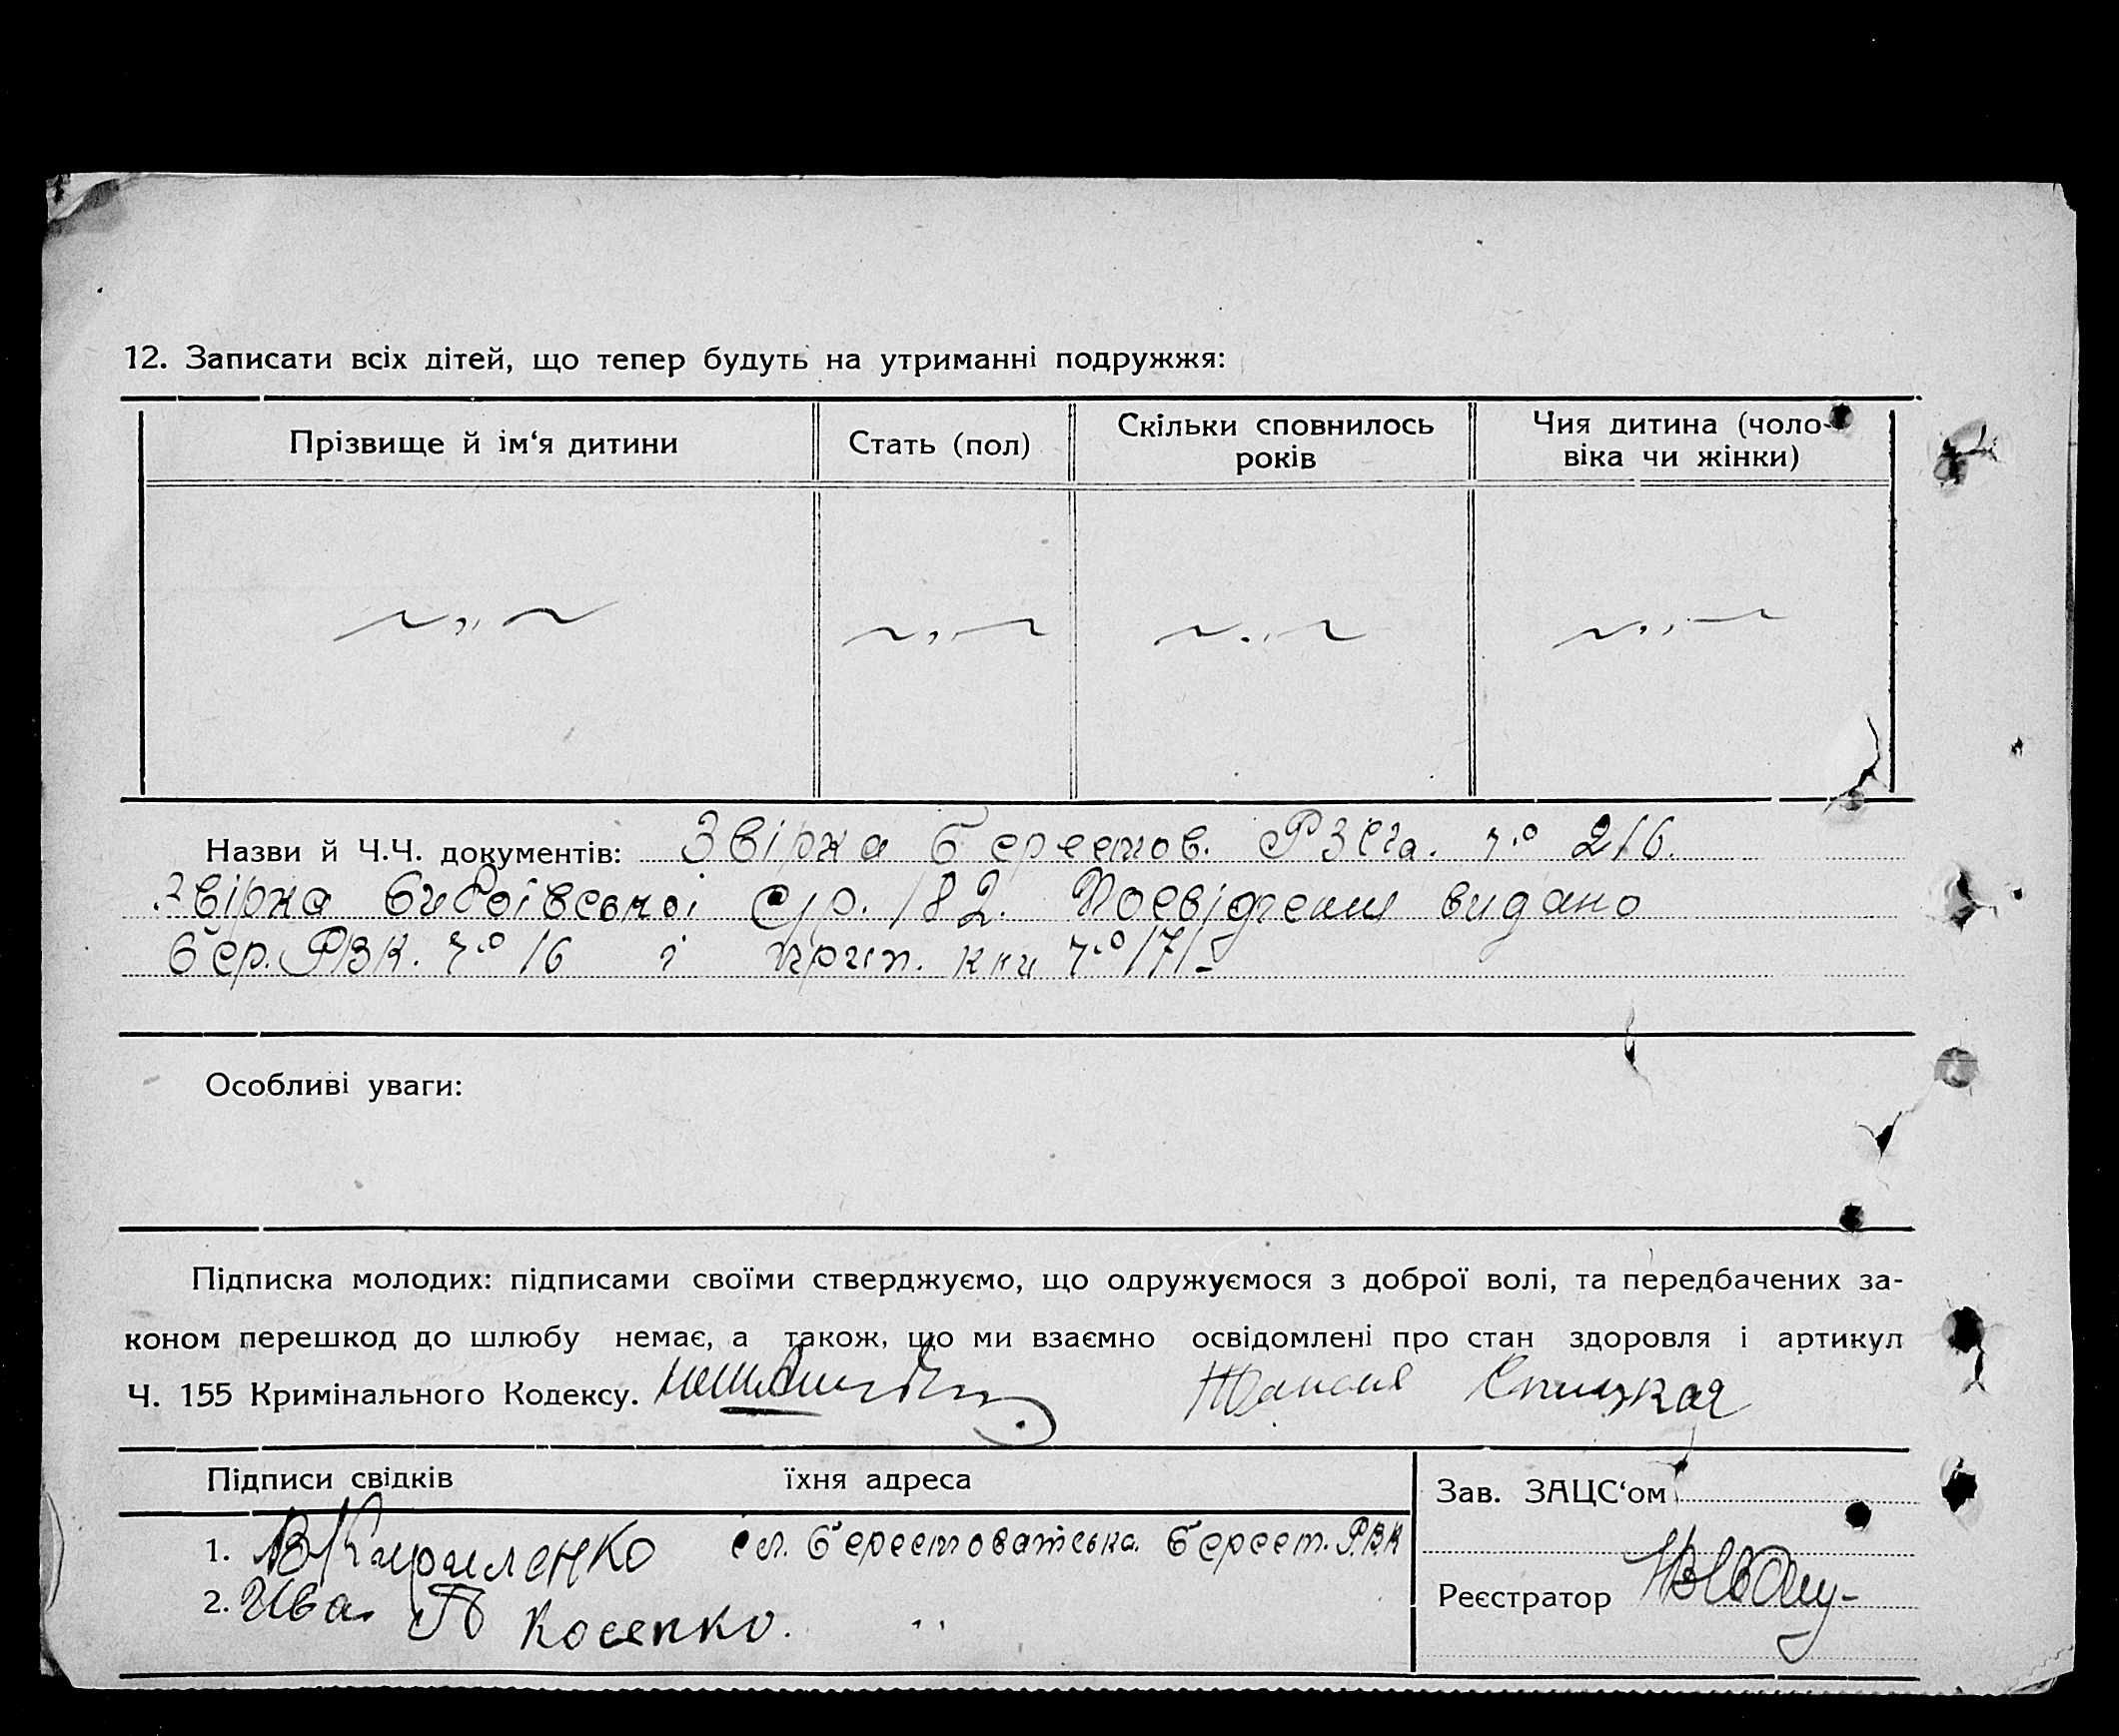 12. Записати всіх дітей, що тепер будуть на утриманні подружжя:
Прізвище й ім‘я дитини
Стать (пол)
Скільки сповнилось
років
Чия дитина (чоло-
віка чи жінки)
Назви й Ч.Ч. документів: Звірка Берестов. РЗСга. ч.о 216.
Звірка с/р. 182. видано
Бер. РВК. ч.о 16 і прип. кни ч.о 171-
Особливі уваги:
Підписка молодих: підписами своїми стверджуємо, що одружуємося з доброї волі, та передбачених за-
коном перешкод до шлюбу немає, а також, що ми взаємно освідомлені про стан здоровля і артикул
Ч. 155 Кримінального Кодексу.
Підписи свідків
їхня адреса
1. В Кириленко сл. Берестоватська Берест. РВК
2. Ива П Косенко. ,,
Зав. ЗАЦС‘ом
Реєстратор